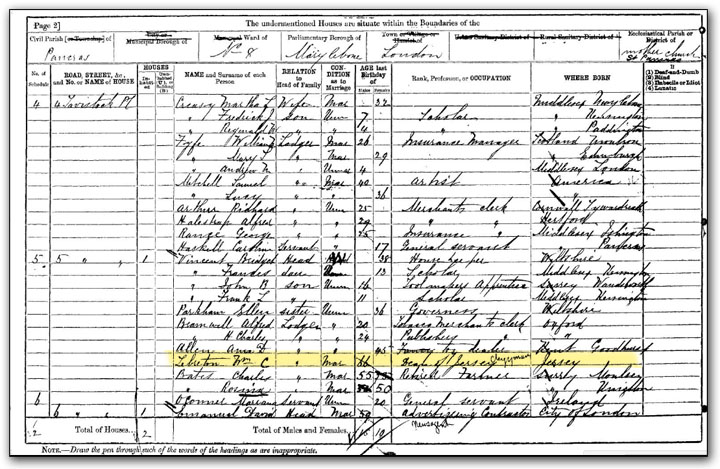 Page 2]
The undermentioned Houses are situate within the Boundaries of the
Civil Parish [or Township] of
Pancras
City or
Municipal Borough of
Municipal Ward of
No 8
Parliamentary Borough of
Marylebone
Town or Village or Hamlet of
London
Urban Sanitary District of
Rural Sanitary District of
Ecclesiastical Parish or District of
mother church St Pancras
No. of Schedule
ROAD, STREET, &c., and No. or NAME of HOUSE
HOUSES
NAME and Surname of each Person
RELATION to Head of Family
CONDITION as to Marriage
AGE last Birthday of
Males Females
Rank, Profession, or OCCUPATION
WHERE BORN
If
(1) Deaf-and-Dumb
(2) Blind
(3) Imbecile or Idiot
(4) Lunatic
4 4 Tavistock Pl Creasey Martha L Wife Mar 32 Middlesex Marylebone
" Fredrick J Son Unm 7 Scholar " Kensington
" Reginald W " " 4 " Paddington
Fyfe William Lodger Mar 26 Insurance Manager Scotland
" Mary " Mar 29 " Edinburgh
" Andrew " 4 Middlesex London
Mitchell Samuel " Mar 40 artist America
" Lucy " " 36 "
Arthur Richard " Unm 25 Merchants clerk Cornwall Tywardreath
Halestrap Alfred " " 29 Hertford
Range George " " 25 Insurance " Middlesex Islington
Haskell Caroline Servant " 17 General servant " Pancras
5 5 " " 1 Vincent Bridget Head 38 House keeper Wiltshire
" Frances daur 13 Scholar Middlesex Kensington
" John B son Unm 16 Toolmakers Apprentice Surrey Wandsworth
" Frank L " 11 Scholar Middlesex Kensington
Parkham Ellen sister Unm 36 Governess Wiltshire
Bramwell Alfred Lodger " 20 Merchants clerk Oxford
" H Charles " " 24 Publishers " "
Allen Anna " " 45 Fancy dealer Kent Goudhurst
Lebreton Wm C " Mar 66 Dean of Jersey Clergyman Jersey
Bates Charles " Mar 55 Retired Farmer Surrey
" " Mar 50 "
O'Connel servant Unm 20 General servant Ireland
6 6 " " 1 Emanuel David Head Mar 59 Advertizing Contractor City of London
Newsagent
2 Total of Houses... 2 Total of Males and Females... 10
NOTE.—Draw the pen through such of the words of the headings as are inappropriate.